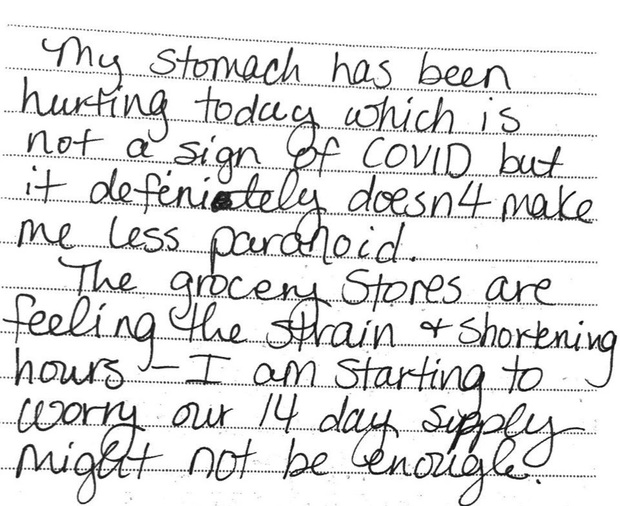 My stomach has been
hurting today which is
not a sign of COVID but
it definitely doesn't make
me less paranoid.
The grocery stores are
feeling the strain & shortening
hours - I am starting to
worry our 14 day supply
might not be enough.